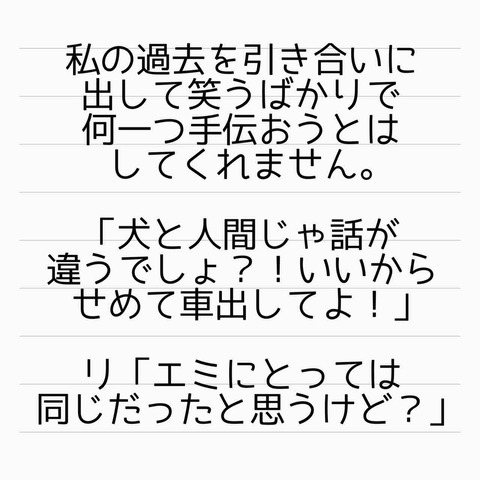 私の過去を引き合いに
出して笑うばかりで
何一つ手伝おうとは
してくれません。
「犬と人間じゃ話が
違うでしょ？！いいから
せめて車出してよ！」
リ「エミにとっては
同じだったと思うけど？」